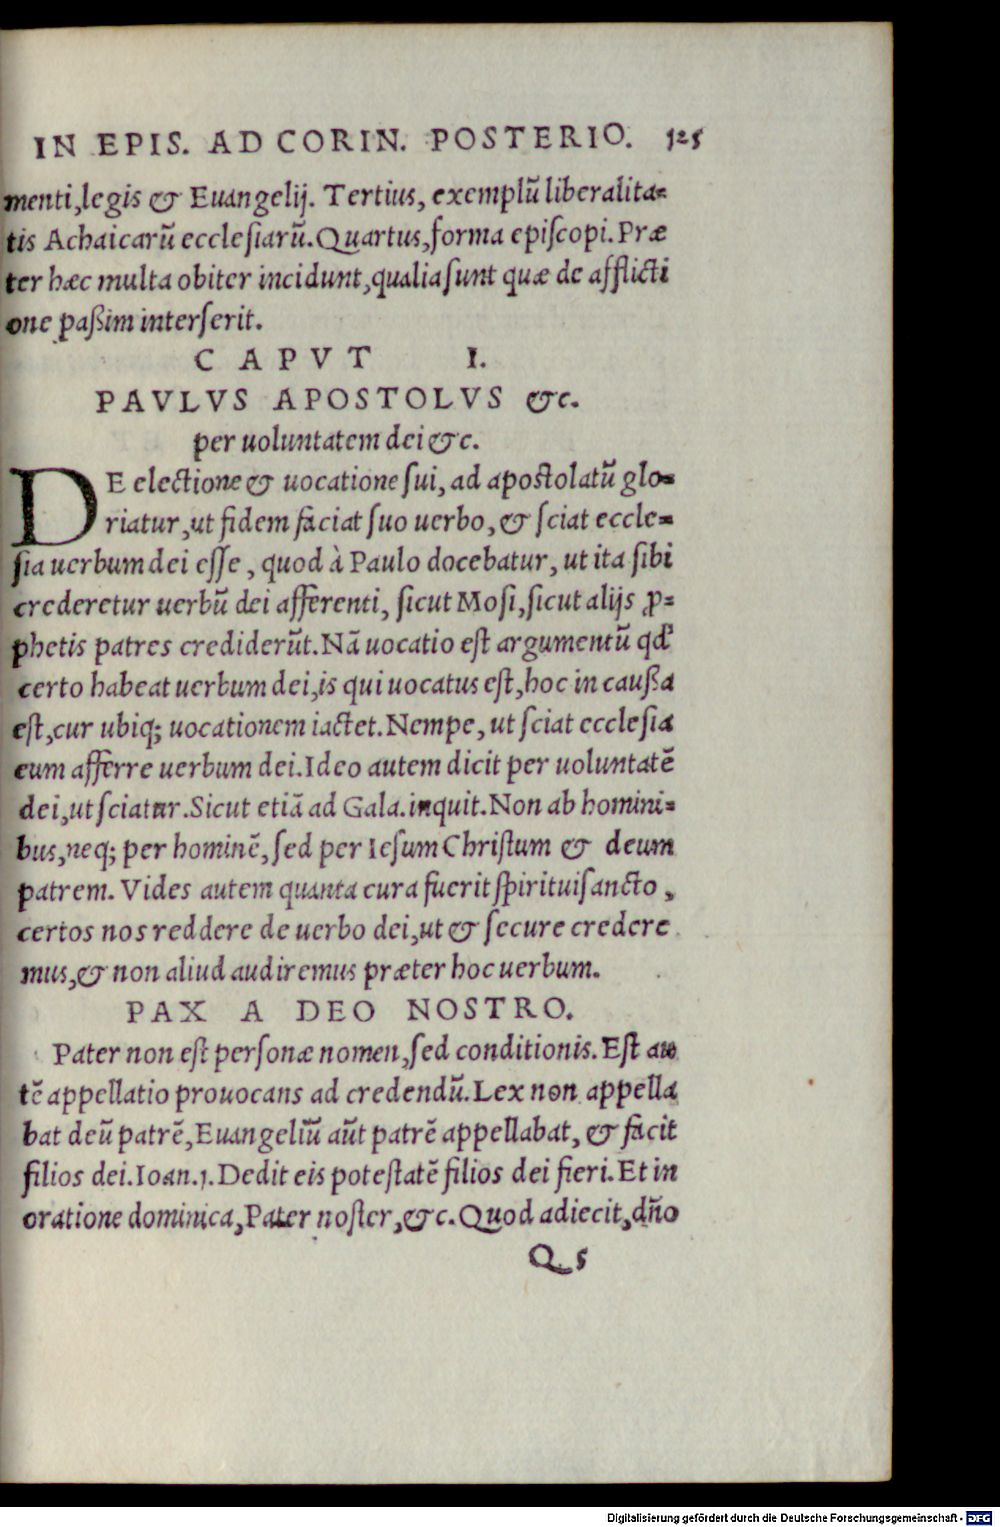 IN EPIS. AD CORIN. POSTERIO. 125
menti, legis & Euangelij. Tertius, exemplū liberalita-
tis Achaicarū ecclesiarū. Quartus, forma episcopi. Præ
ter hæc multa obiter incidunt, qualia sunt quæ de afflicti
one paßim interserit.
CAPVT I.
PAVLVS APOSTOLVS &c.
per uoluntatem dei &c.
DE electione & uocatione sui, ad apostolatū glo-
riatur, ut fidem faciat suo uerbo, & sciat eccle-
sia uerbum dei esse, quod à Paulo docebatur, ut ita sibi
crederetur uerbū dei afferenti, sicut Mosi, sicut alijs ꝓ-
phetis patres crediderūt. Nā uocatio est argumentū qd'
certo habeat uerbum dei, is qui uocatus est, hoc in caußa
est, cur ubiq; uocationem iactet. Nempe, ut sciat ecclesia
eum afferre uerbum dei. Ideo autem dicit per uoluntatē
dei, ut sciatur. Sicut etiā ad Gala. inquit. Non ab homini-
bus, neq; per hominē, sed per Iesum Christum & deum
patrem. Vides autem quanta cura fuerit spirituisancto,
certos nos reddere de uerbo dei, ut & secure credere
mus, & non aliud audiremus præter hoc uerbum.
PAX A DEO NOSTRO.
Pater non est personæ nomen, sed conditionis. Est au
tē appellatio prouocans ad credendū. Lex non appella
bat deū patrē, Euangeliū aūt patrē appellabat, & facit
filios dei. Ioan. 1. Dedit eis potestatē filios dei fieri. Et in
oratione dominica, Pater noster, &c. Quod adiecit, dño
Q 5
Digitalisierung gefördert durch die Deutsche Forschungsgemeinschaft - DFG